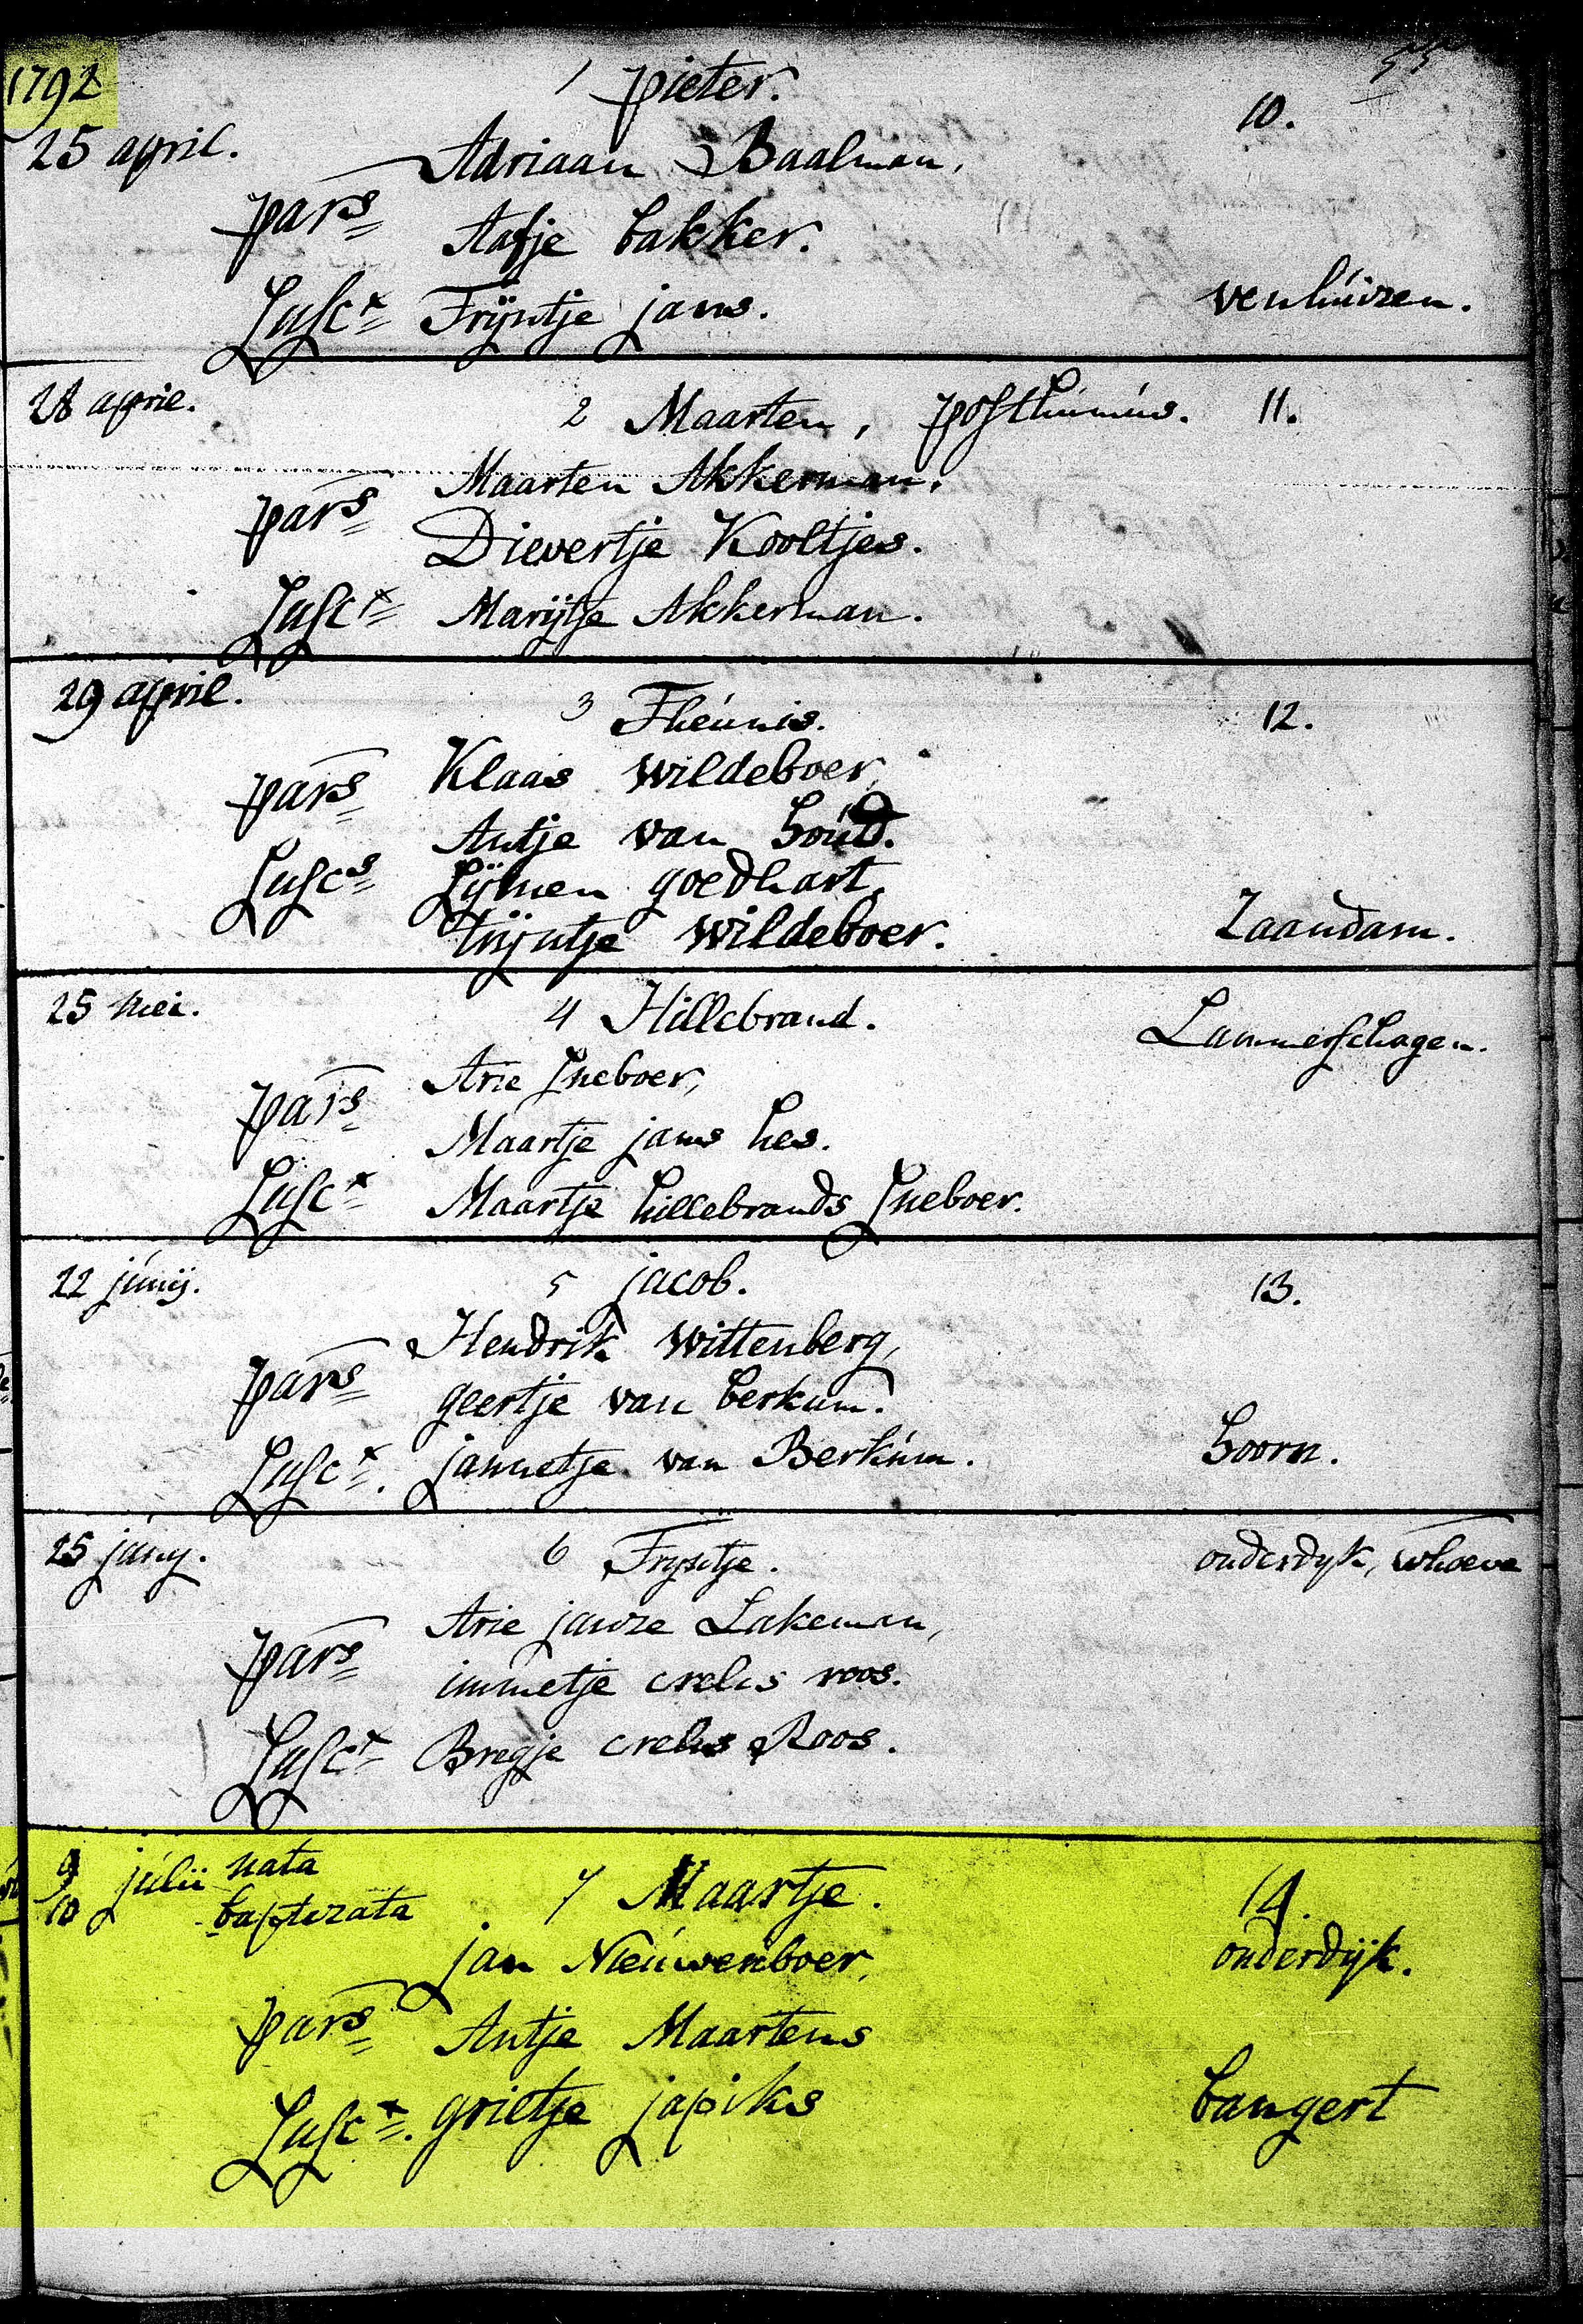 1792
55
1 pieter.
10.
25 april.
Adriaan Baalman,
pars
Aafje bakker.
Susc^x Trijntje jans.
venhuizen.
28 april.
2 Maarten, posthumus. 11.
Maarten Akkerman,
pars
Dievertje Kooltjes.
Susc^x Marijtje Akkerman.
29 april.
3 Theunis.
12.
Klaas wildeboer,
pars
Antje van houd.
Suscs Sijmen goedhart,
trijntje wildeboer.
Zaandam.
25 mei.
4 Hillebrand.
Lammerschagen.
Arie Sneboer,
pars
Maartje jans hes.
Susc^x Maartje hillebrands Sneboer.
22 junij.
5 jacob.
13.
Hendrik wittenberg,
pars
geertje van berkum.
Susc^x. jannetje van Berkum.
hoorn.
25 juny.
6 Tryntje.
onderdyk, whoeve
Arie janze Lakeman,
pars
immetje crelis roos.
Susc^x Bregje crelis Roos.
9 julii nata
7 Maartje.
14.
10 baptizata
jan Nieuwenboer,
onderdijk.
pars Antje Maartens
Susc^x. grietje japiks
bangert